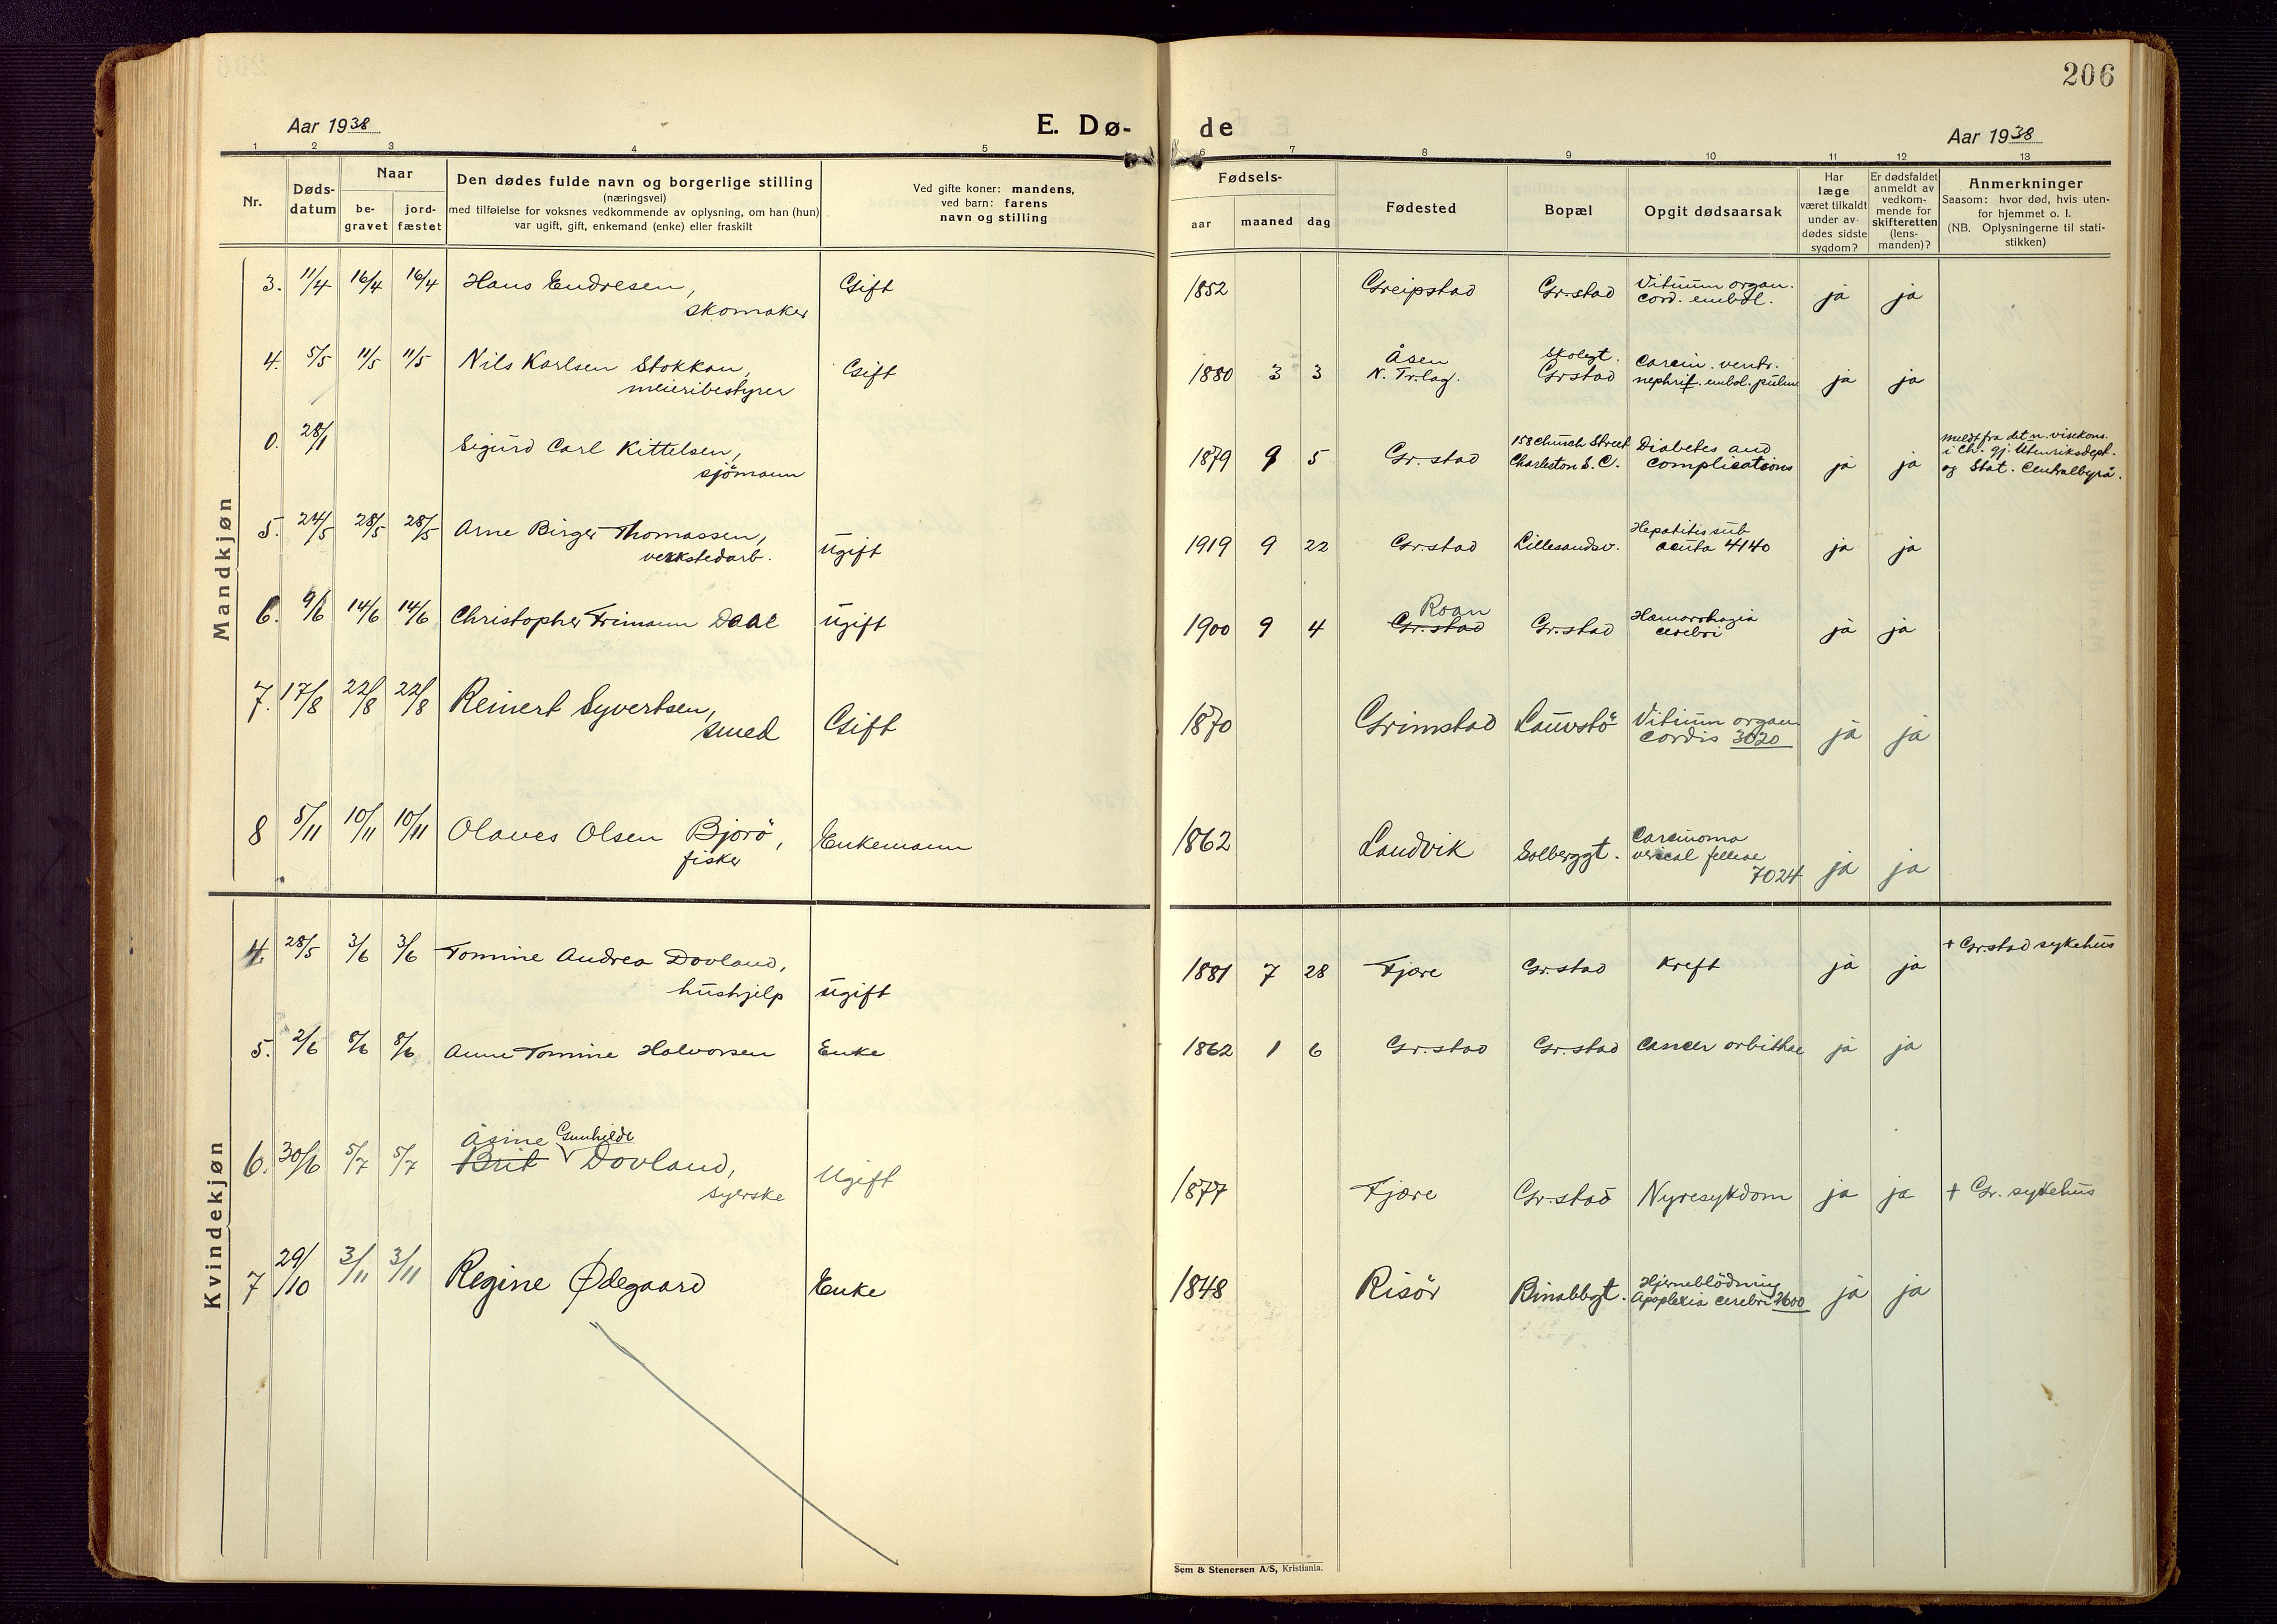 206
Aar 1938
E. Dø-
de
Aar 1938
1 2 3 4 5
6 7 8 9 10 11 12 13
Nr.
Døds-
datum
Naar
be-
gravet
jord-
fæstet
Den dødes fulde navn og borgerlige stilling
(næringsvei)
med tilføielse for voksnes vedkommende av oplysning, om han (hun)
var ugift, gift, enkemand (enke) eller fraskilt
Ved gifte koner: mandens,
ved barn: farens
navn og stilling
Fødsels-
aar maaned dag
Fødested
Bopæl
Opgit dødsaarsak
Har
læge
været tilkaldt
under av-
dødes sidste
sygdom?
Er dødsfaldet
anmeldt av
vedkom-
mende for
skifteretten
(lens-
manden)?
Anmerkninger
Saasom: hvor død, hvis uten-
for hjemmet o. l.
(NB. Oplysningerne til stati-
stikken)
Mandkjøn
3. 11/4 16/4 16/4 Hans Endresen, Gift 1852 Greipstad Gr.stad Vitium organ. ja ja
skomaker cord. embol.
4. 5/5 11/5 11/5 Nils Karlsen Stokkan, Gift 1880 3 3 Åsen Skolegt. Carcin. ventr. ja ja
meieribestyrer N. Tr.lag. Grstad nephrit. embol. pulm.
0. 28/1 Sigurd Carl Kittelsen, 1879 9 5 Gr.stad 158 Church Street Diabetes and ja ja Meldt fra det n. visekons.
sjömann Charleston S.C. complications i Ch. gj. Utenriksdept.
og Stat. Centralbyrå.
5. 24/5 28/5 28/5 Arne Birger Thomassen, ugift 1919 9 22 Gr.stad Lillesandsv. Hepatitis sub ja ja
verkstedarb. acuta 4140
6. 9/6 14/6 14/6 Christopher Frimann Daae ugift 1900 9 4 Roan Gr.stad Hæmorrhagia ja ja
Gr.stad cerebri
7. 17/8 22/8 22/8 Reinert Syvertsen, Gift 1870 Grimstad Lauvstö Vitium organ ja ja
smed cordis 3020
8 5/11 10/11 10/11 Olaves Olsen Bjorö, Enkemann 1862 Landvik Solberggt. Carcinoma ja ja
fisker vesical felleae
7024
Kvindekjøn
4. 28/5 3/6 3/6 Tomine Andrea Dovland, ugift 1881 7 28 Fjære Gr.stad kreft ja ja + Gr.stad sykehus
hushjelp
5. 2/6 8/6 8/6 Anne Tomine Halvorsen Enke 1862 1 6 Gr.stad Gr.stad cancer orbithae ja ja
Åsine Gunhilde
6. 30/6 5/7 5/7 Brit Dovland, Ugift 1877 Fjære Gr.stad Nyresykdom ja ja + Gr. sykehus
syerske
7 29/10 3/11 3/11 Regine Ødegaard Enke 1848 Risör Binabbgt. Hjerneblödning ja ja
Apoplexia cerebri 2600
Sem & Stenersen A/S, Kristiania.